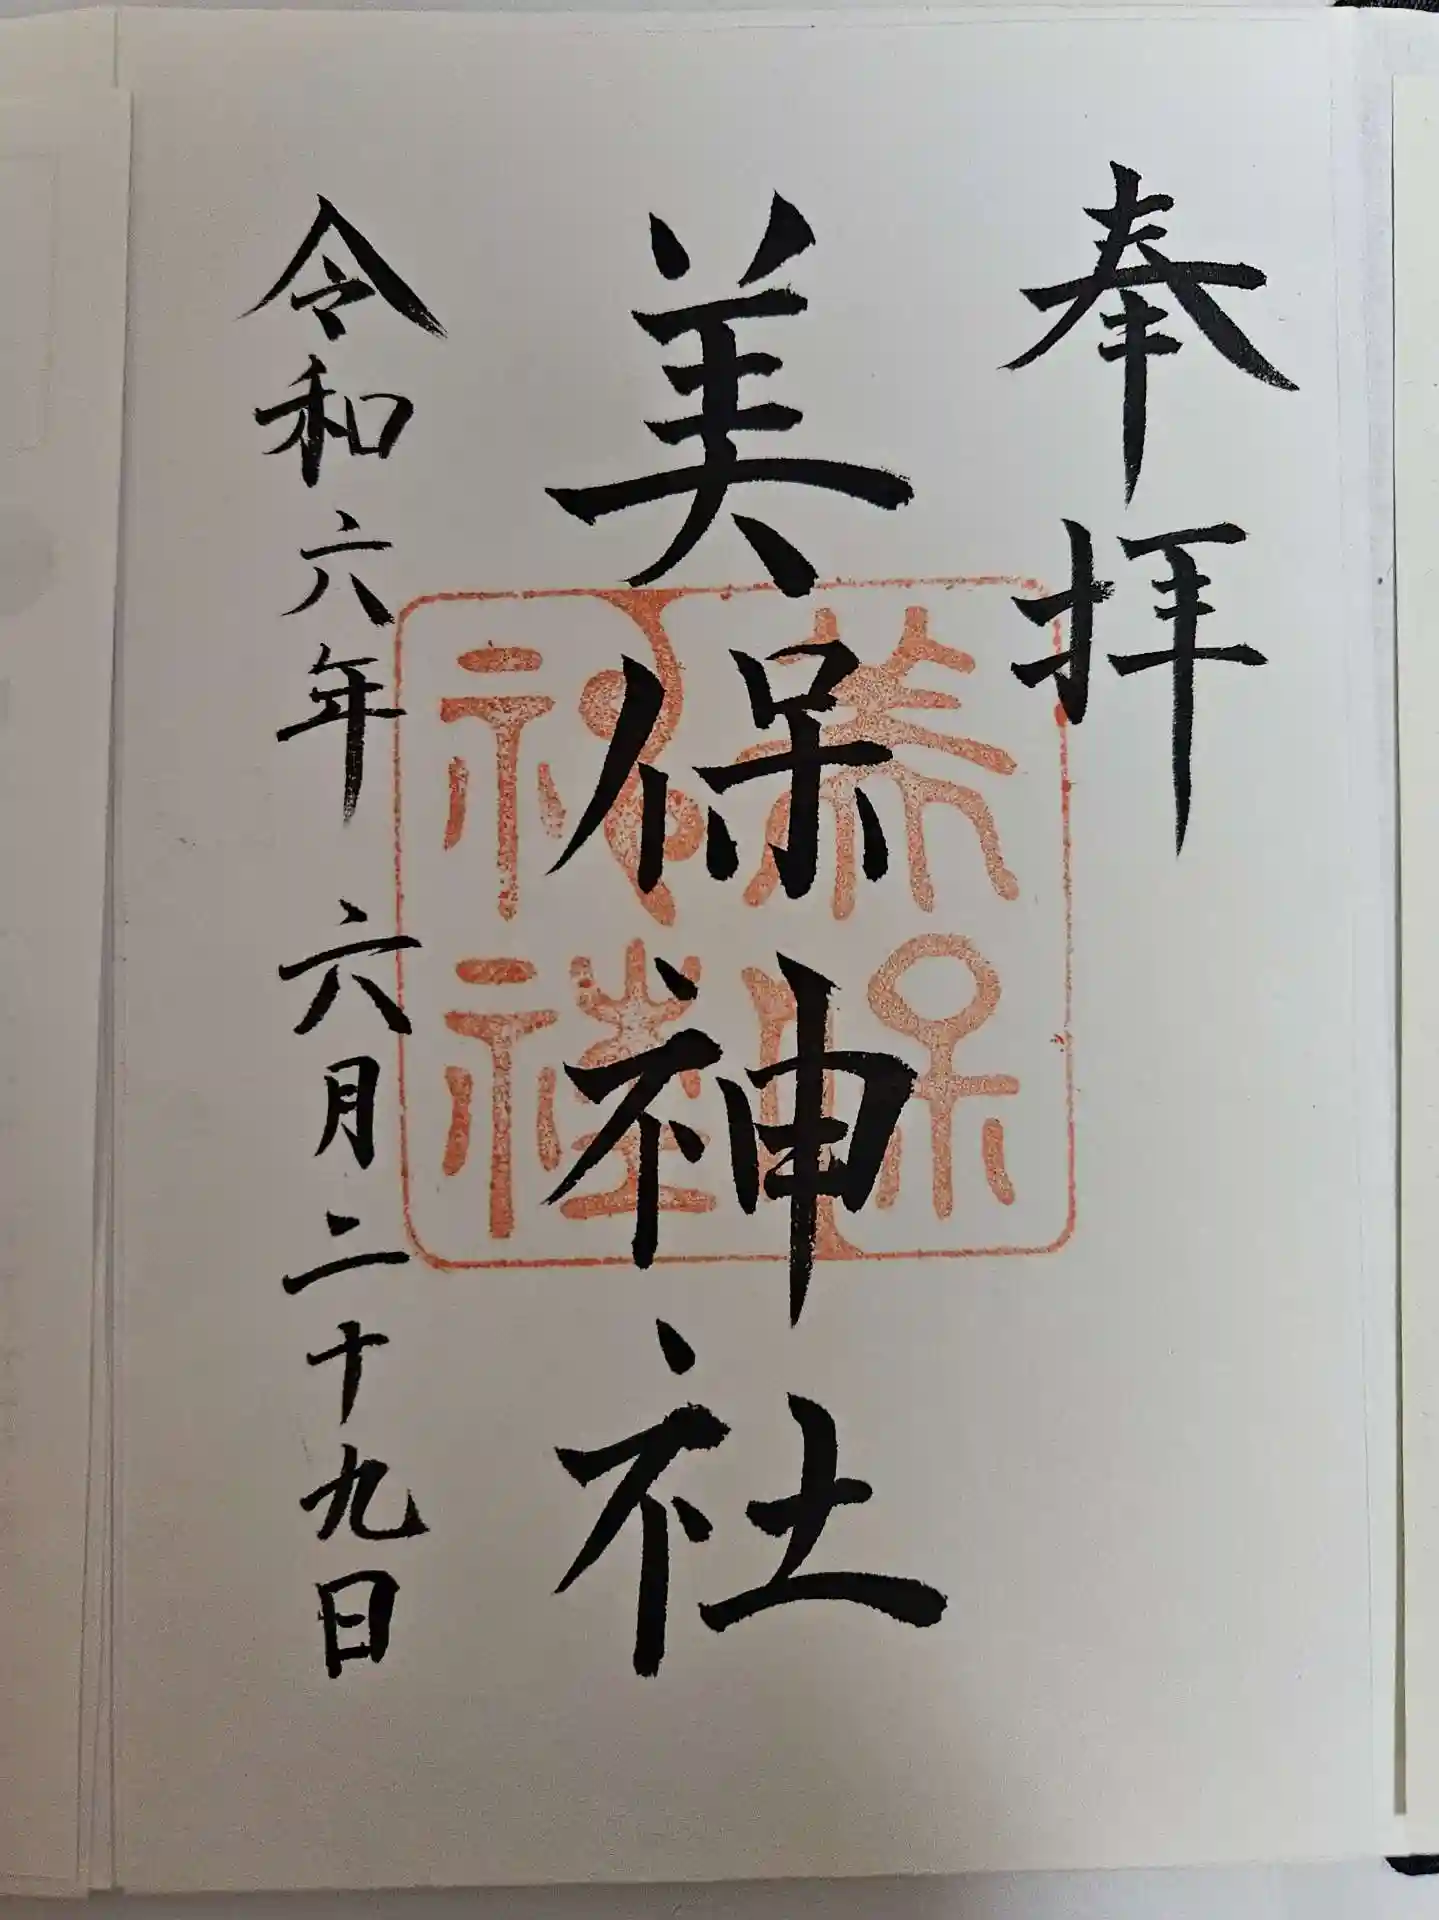 奉拝
美保神社
令和六年 六月二十九日
美保
神社